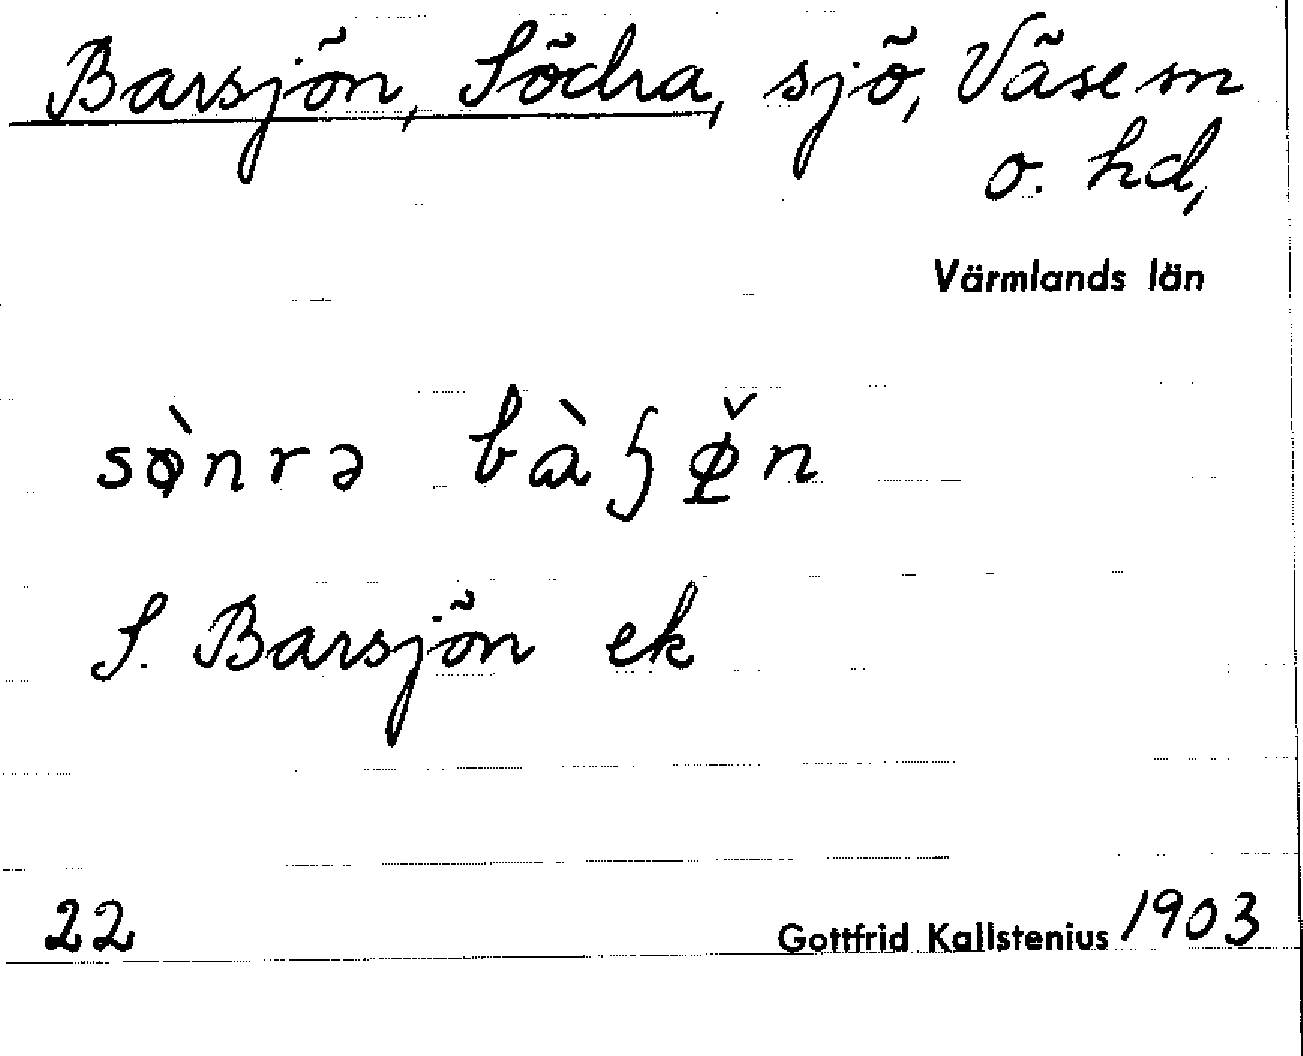 Barsjön, Södra, sjö, Väse sn
o. hd,
Värmlands län
sø̀nrə bàꞎø̌n
S. Barsjön ek
22 Gottfrid Kallstenius 1903